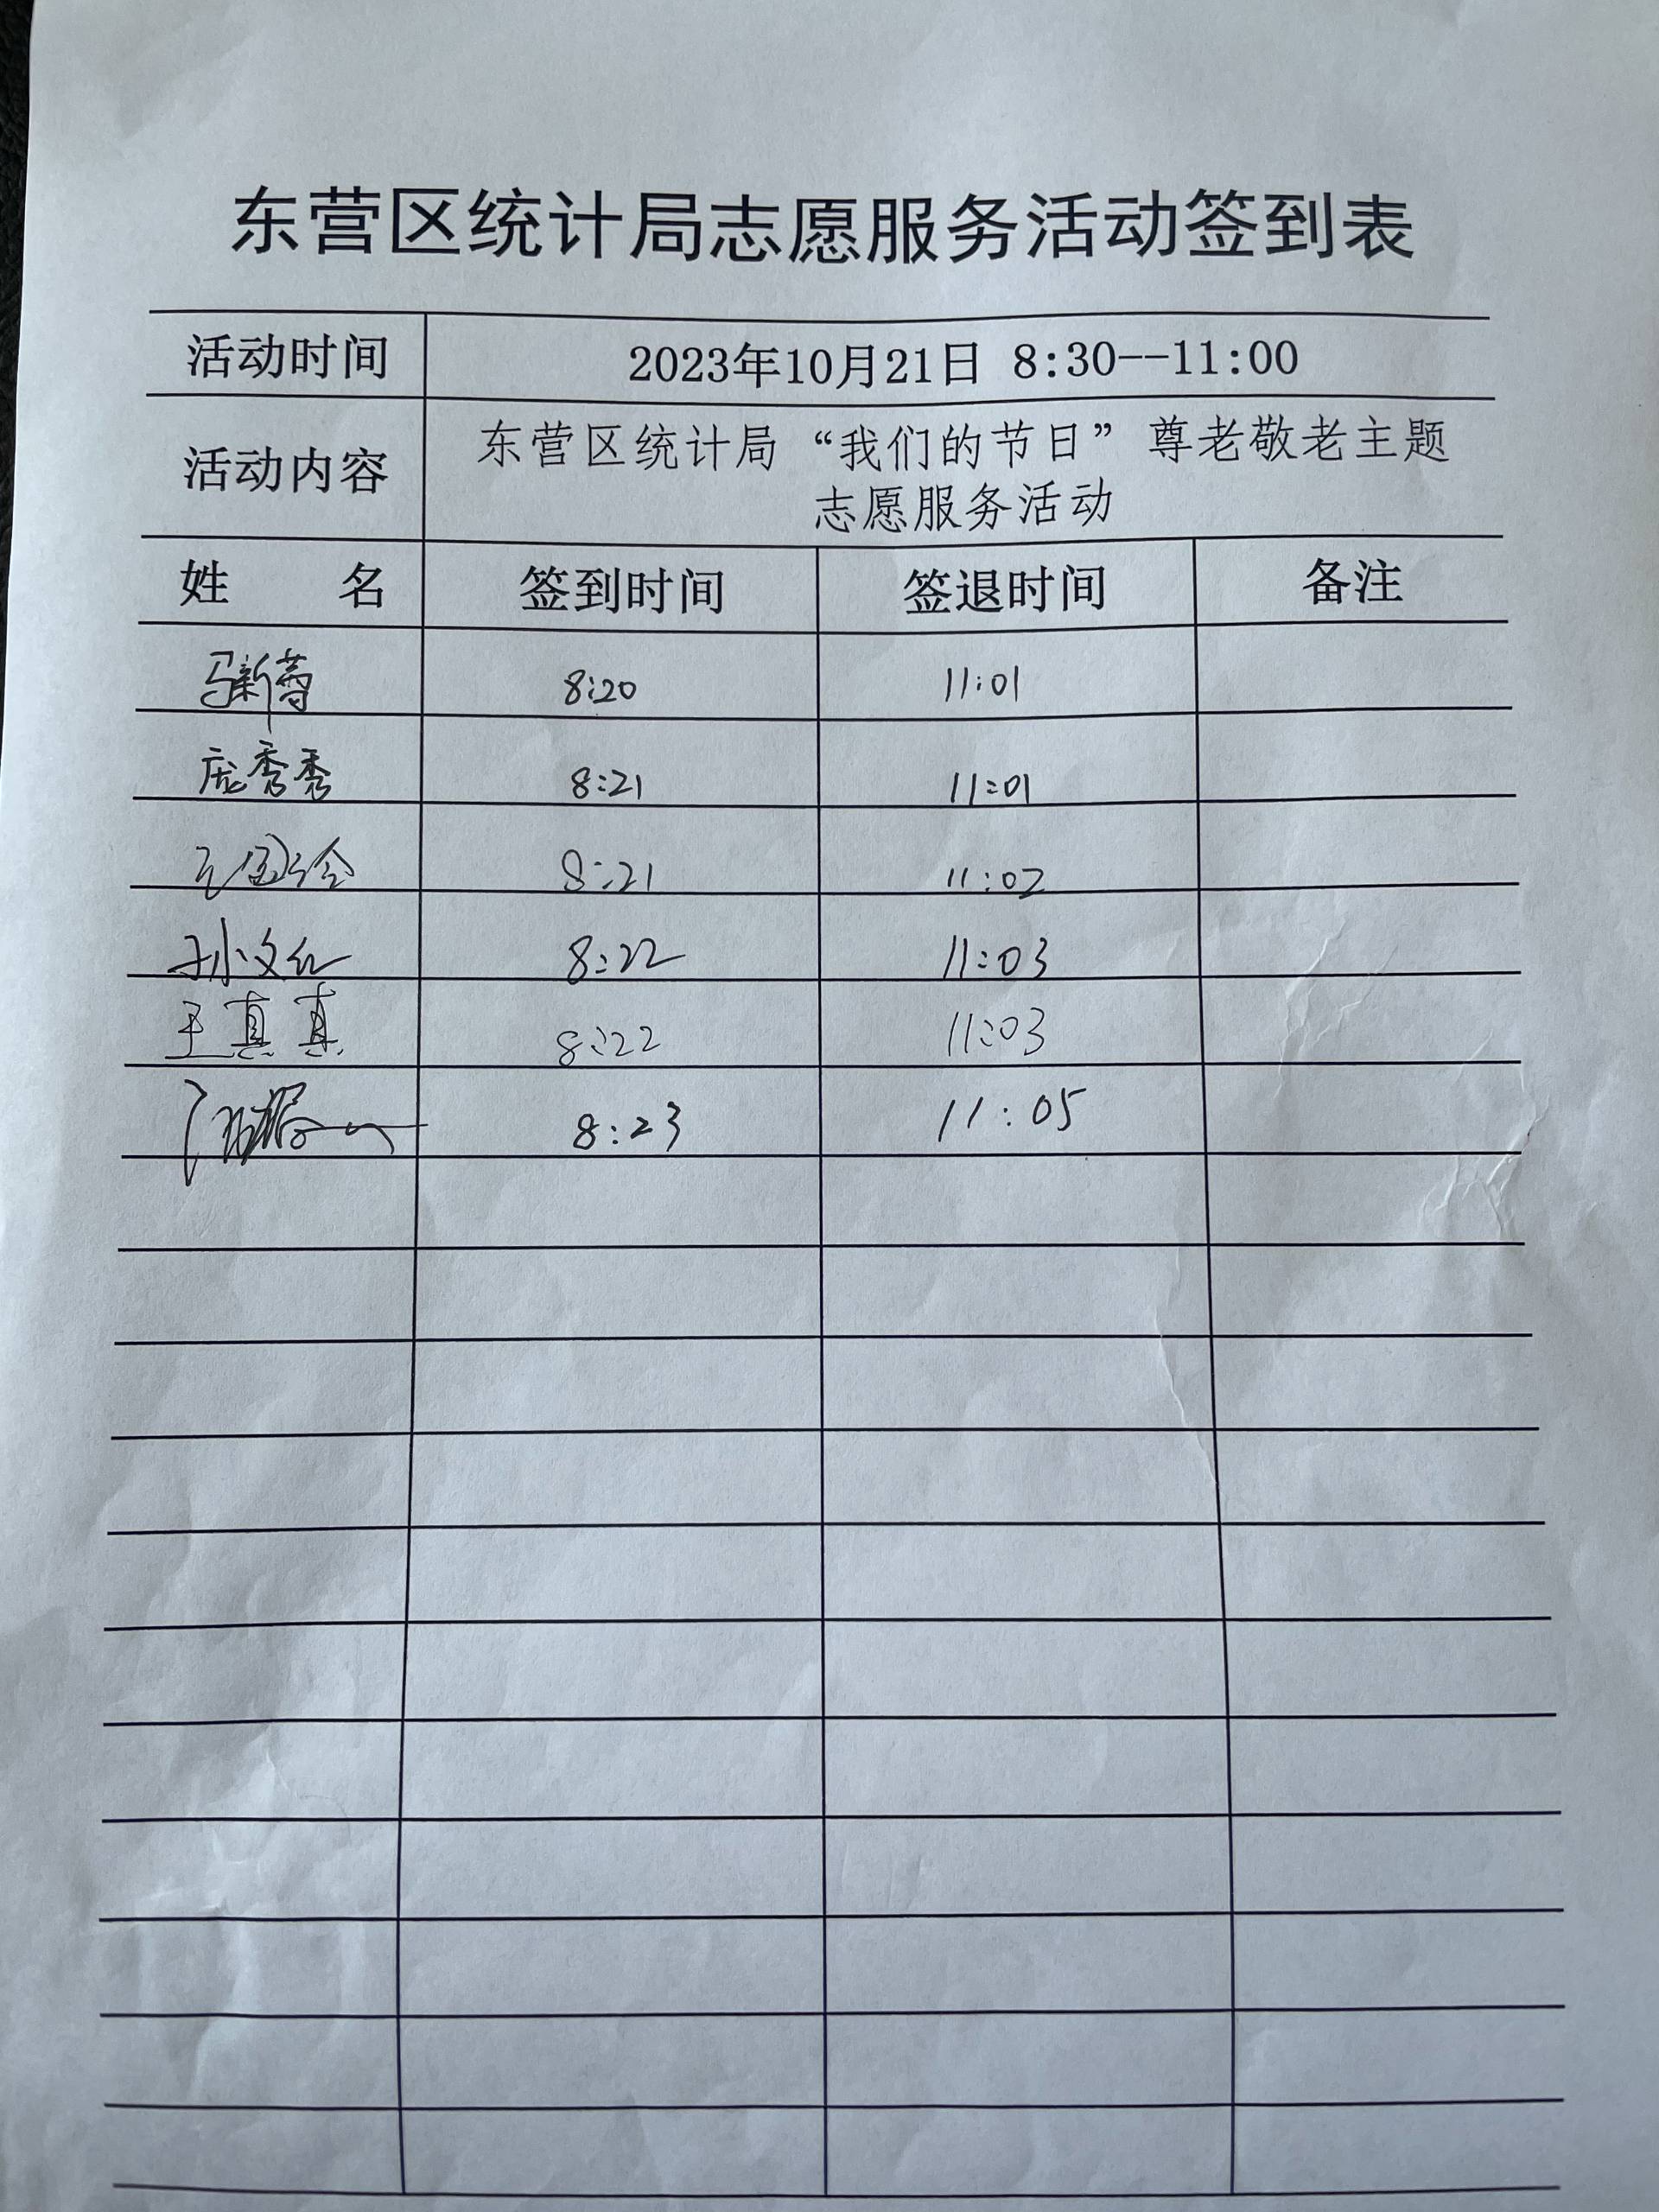 东营区统计局志愿服务活动签到表
活动时间 2023年10月21日 8:30--11:00
活动内容 东营区统计局“我们的节日”尊老敬老主题
志愿服务活动
姓 名 签到时间 签退时间 备注
马新蕾 8:20 11:01
庞秀秀 8:21 11:01
8:21 11:02
孙文红 8:22 11:03
王真真 8:22 11:03
8:23 11:05